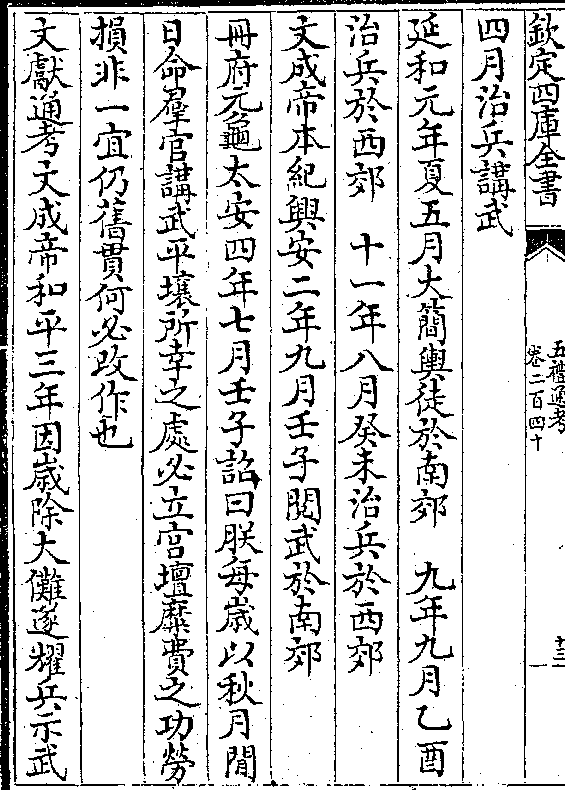 欽定四庫全書
五禮通考
卷二百四十
十三
四月治兵講武
延和元年夏五月大簡輿徒於南郊　九年九月乙酉
治兵於西郊　十一年八月癸未治兵於西郊
文成帝本紀興安二年九月壬子閲武於南郊
冊府元龜太安四年七月壬子詔曰朕每嵗以秋月閒
日命羣官講武平壤所幸之處必立宫壇糜費之功勞
損非一宜仍舊貫何必改作也
文獻通考文成帝和平三年因嵗除大儺遂耀兵示武